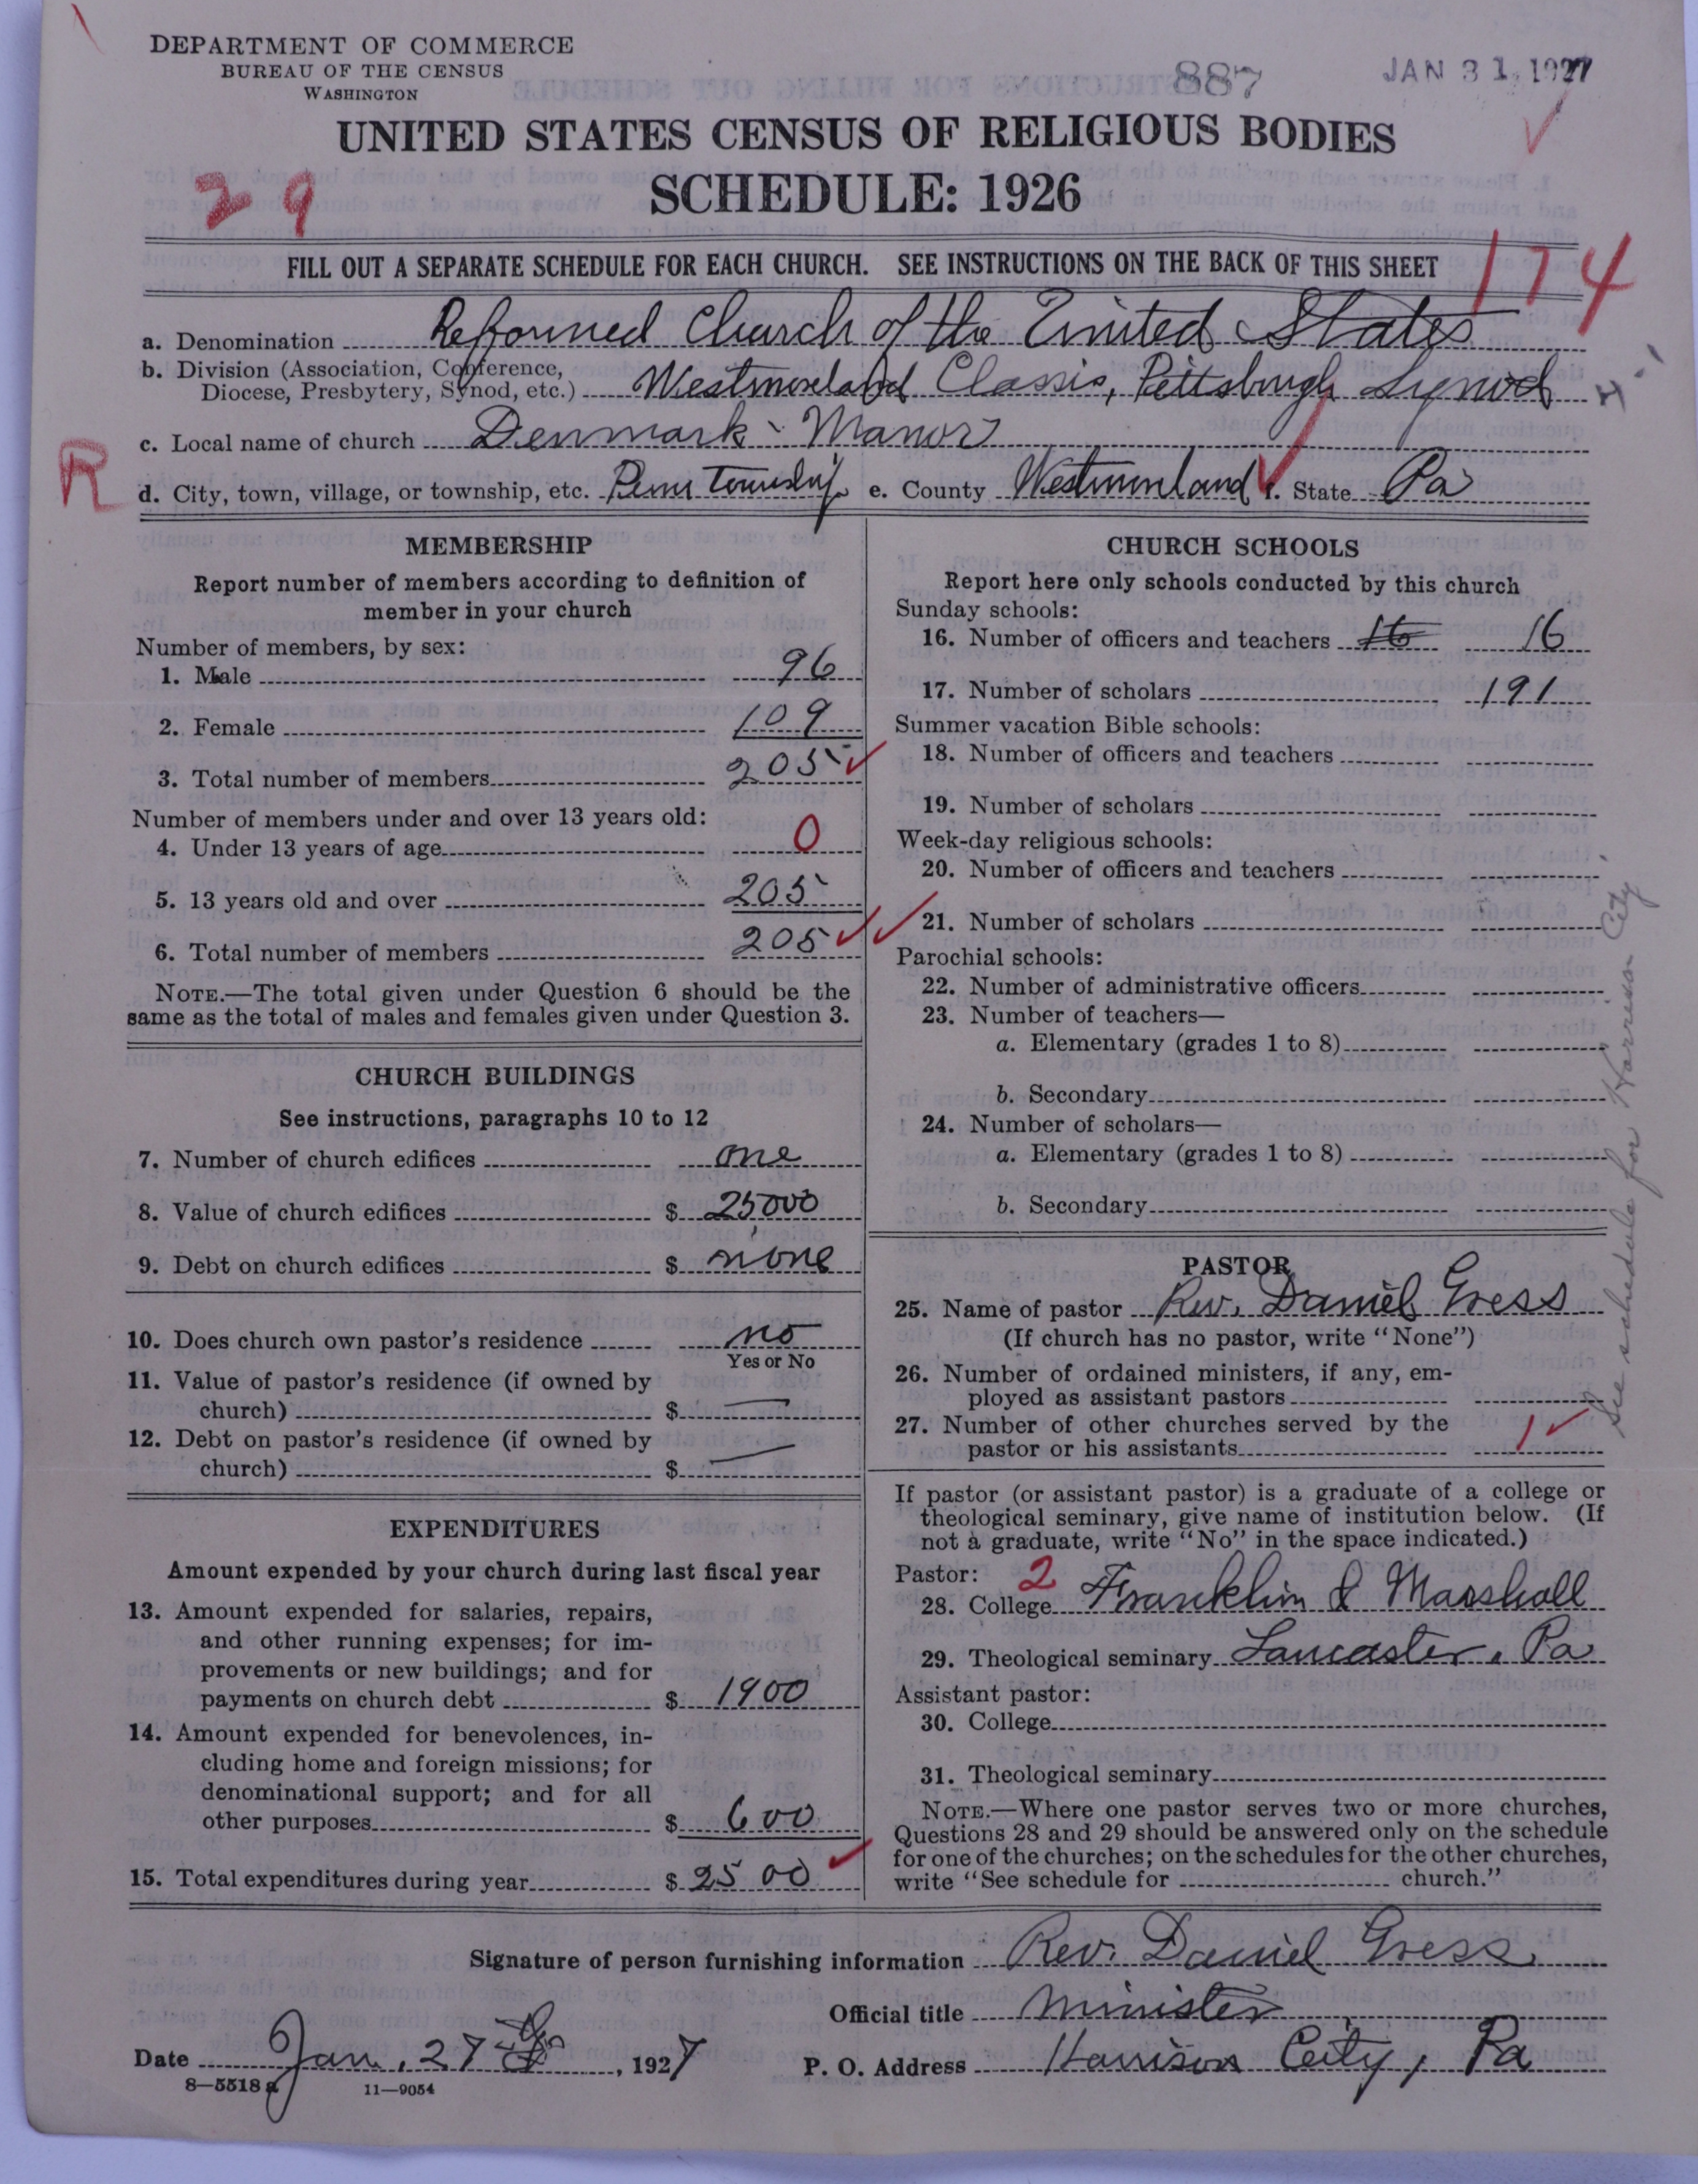 DEPARTMENT OF COMMERCE
BUREAU OF THE CENSUS
WASHINGTON
887
JAN 31 1927
UNITED STATES CENSUS OF RELIGIOUS BODIES
SCHEDULE: 1926
29
FILL OUT A SEPARATE SCHEDULE FOR EACH CHURCH. SEE INSTRUCTIONS ON THE BACK OF THIS SHEET
174
a. Denomination Reformed Church of the United States
b. Division (Association, Conference,
Diocese, Presbytery, Synod, etc.) Westmoreland Classis, Pittsburgh Synod
c. Local name of church Denmark - Manor
R
d. City, town, village, or township, etc. Penn Township e. County Westmoreland f. State Pa
MEMBERSHIP
Report number of members according to definition of
member in your church
Number of members, by sex:
1. Male 96
2. Female 109
3. Total number of members 205
Number of members under and over 13 years old:
4. Under 13 years of age 0
5. 13 years old and over 205
6. Total number of members 205
NOTE.—The total given under Question 6 should be the
same as the total of males and females given under Question 3.
CHURCH BUILDINGS
See instructions, paragraphs 10 to 12
7. Number of church edifices one
8. Value of church edifices $ 25,000
9. Debt on church edifices $ none
10. Does church own pastor's residence no
Yes or No
11. Value of pastor's residence (if owned by
church) $ —
12. Debt on pastor's residence (if owned by
church) $ —
EXPENDITURES
Amount expended by your church during last fiscal year
13. Amount expended for salaries, repairs,
and other running expenses; for im-
provements or new buildings; and for
payments on church debt $ 1900
14. Amount expended for benevolences, in-
cluding home and foreign missions; for
denominational support; and for all
other purposes $ 600
15. Total expenditures during year $ 2500
CHURCH SCHOOLS
Report here only schools conducted by this church
Sunday schools:
16. Number of officers and teachers 16 16
17. Number of scholars 191
Summer vacation Bible schools:
18. Number of officers and teachers
19. Number of scholars
Week-day religious schools:
20. Number of officers and teachers
21. Number of scholars
Parochial schools:
22. Number of administrative officers
23. Number of teachers—
a. Elementary (grades 1 to 8)
b. Secondary
24. Number of scholars—
a. Elementary (grades 1 to 8)
b. Secondary
PASTOR
25. Name of pastor Rev. Daniel Gress
(If church has no pastor, write "None")
26. Number of ordained ministers, if any, em-
ployed as assistant pastors
27. Number of other churches served by the
pastor or his assistants 1
If pastor (or assistant pastor) is a graduate of a college or
theological seminary, give name of institution below. (If
not a graduate, write "No" in the space indicated.)
Pastor: 2
28. College Franklin & Marshall
29. Theological seminary Lancaster, Pa
Assistant pastor:
30. College
31. Theological seminary
NOTE.—Where one pastor serves two or more churches,
Questions 28 and 29 should be answered only on the schedule
for one of the churches; on the schedules for the other churches,
write "See schedule for church."
See schedule for Harrison City
Signature of person furnishing information Rev. Daniel Gress
Official title Minister
Date Jan. 27, 1927 P. O. Address Harrison City, Pa
8—5518 a 11—9054